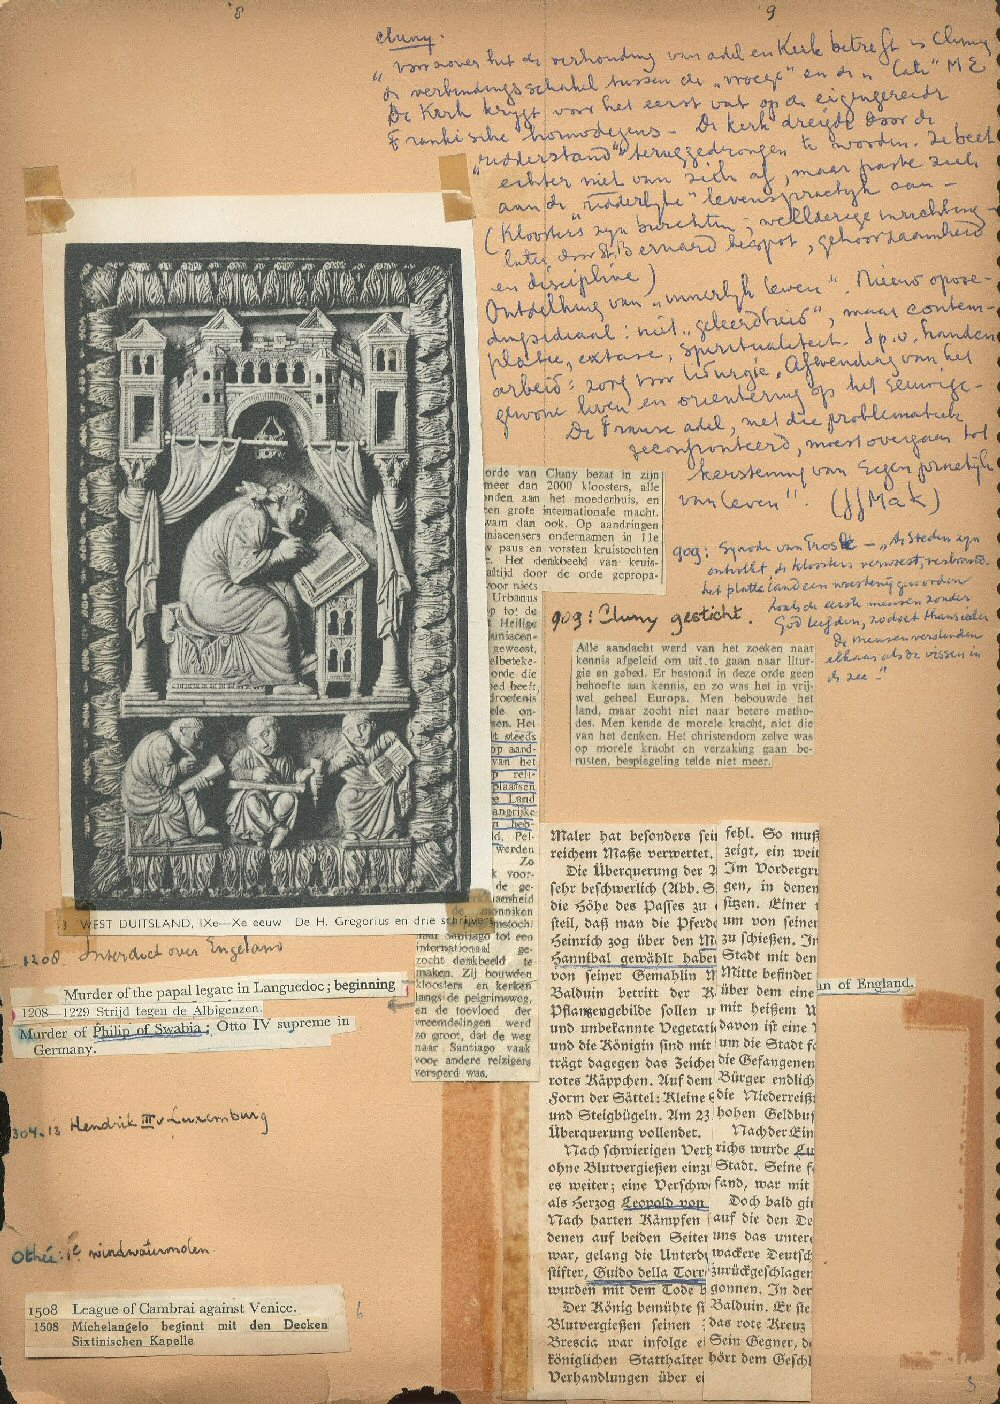 8
9
Cluny.
"Voorzover het de verhouding van adel en Kerk betreft is Cluny
de verbindingsschakel tussen de "vroege" en de "late" ME
De Kerk krijgt voor het eerst vat op de eigengereide
Frankische houwdegens – De Kerk dreigde door de
"ridderstand" teruggedrongen te worden. Ze beet
echter niet van zich af, maar paste zich
aan de "ridderlijke" levenspractijk aan –
(Kloosters zijn burchten, inrichting
later door St. Bernard bespot, gehoorzaamheid
en discipline)
Ontdekking van "innerlijk leven". Nieuw opvoe-
dingsideaal: niet "geleerdheid", maar contem-
platie, extase, spiritualiteit. I.p.v. handen
arbeid: zorg voor liturgie. Afwending van het
gewone leven en orientering op het eeuwige –
De Franse adel, met die problematiek
geconfronteerd, moest overgaan tot
kerstening van eigen practijk
van leven". (JJMak)
orde van Cluny bezat in zijn
meer dan 2000 kloosters, alle
onden aan het moederhuis, en
een grote internationale macht.
wam dan ook. Op aandringen
uniacensers ondernamen in 11e
w paus en vorsten kruistochten
c. Het denkbeeld van kruis-
altijd door de orde gepropa-
voor niets
Urbanus
op tot de
t Heilige
luniacen-
geweest,
elbeteke-
orde die
oed heeft,
droefenis
ele on-
sen. Het
t steeds
op aard-
van het
p reli-
plaatsen
e Land
angrijke
n heb-
ld. Pel-
werden
Zo
k voor-
de ge-
aamheid
de monniken
internationaal ge-
zocht denkbeeld te
maken. Zij bouwden
kloosters en kerken
langs de pelgrimsweg,
en de toevloed der
vreemdelingen werd
zo groot, dat de weg
naar Santiago vaak
voor andere reizigers
versperd was.
909: Synode van Trosle – "de steden zijn
ontvolkt, de kloosters verwoest, verbrand.
het platteland een woestenij geworden
zoals de eerste mensen zonder
God leefden, zo doet thans ieder
De mensen verslinden
elkaar als de vissen in
de zee –"
909: Cluny gesticht.
Alle aandacht werd van het zoeken naar
kennis afgeleid om uit te gaan naar litur-
gie en gebed. Er bestond in deze orde geen
behoefte aan kennis, en zo was het in vrij-
wel geheel Europa. Men bebouwde het
land, maar zocht niet naar betere metho-
des. Men kende de morele kracht, niet die
van het denken. Het christendom zelve was
op morele kracht en verzaking gaan be-
rusten, bespiegeling telde niet meer.
WEST DUITSLAND, IXe—Xe eeuw   De H. Gregorius en drie schrijvers
1208 Interdict over Engeland
Murder of the papal legate in Languedoc; beginning
an of England.
1208—1229 Strijd tegen de Albigenzen.
Murder of Philip of Swabia; Otto IV supreme in
Germany.
Hendrik III v Luxemburg
Othée: 1e windwatermolen
1508 League of Cambrai against Venice.
1508 Michelangelo beginnt mit den Decken
Sixtinischen Kapelle
6
Maler hat besonders sei
reichem Maße verwertet.
Die Überquerung der
sehr beschwerlich (Abb. S
die Höhe des Passes zu
steil, daß man die Pferde
Heinrich zog über den M
Hannibal gewählt haber
von seiner Gemahlin M
Balduin betritt der K
Pflanzengebilde sollen u
und unbekannte Vegetati
und die Königin sind mit
trägt dagegen das Zeiche
rotes Käppchen. Auf dem
Form der Sättel: Kleine
und Steigbügeln. Am 23
Überquerung vollendet.
Nach schwierigen Verh
ohne Blutvergießen einzu
es weiter; eine Verschw
als Herzog Leopold von
Nach harten Kämpfen
denen auf beiden Seiten
war, gelang die Unterd
stifter, Guido della Torr
wurden mit dem Tode b
Der König bemühte si
Blutvergießen seinen
Brescia war infolge e
königlichen Statthalter
Verhandlungen über ei
fehl. So muß
zeigt, ein weit
Im Vordergru
gen, in denen
sitzen. Einer
um von seiner
zu schießen. In
Stadt mit den
Mitte befindet
über dem eine
mit heißem W
davon ist eine
um die Stadt fo
die Gefangenen
Bürger endlich
die Niederreiß
hohen Geldbuß
Nach der Ein
richs wurde Lu
Stadt. Seine f
fand, war mit
Doch bald gi
auf die den De
uns das unter
wackere Deutsch
zurückgeschlagen
gonnen. In der
Balduin. Er ste
das rote Kreuz
Sein Gegner, de
hört dem Geschl
3